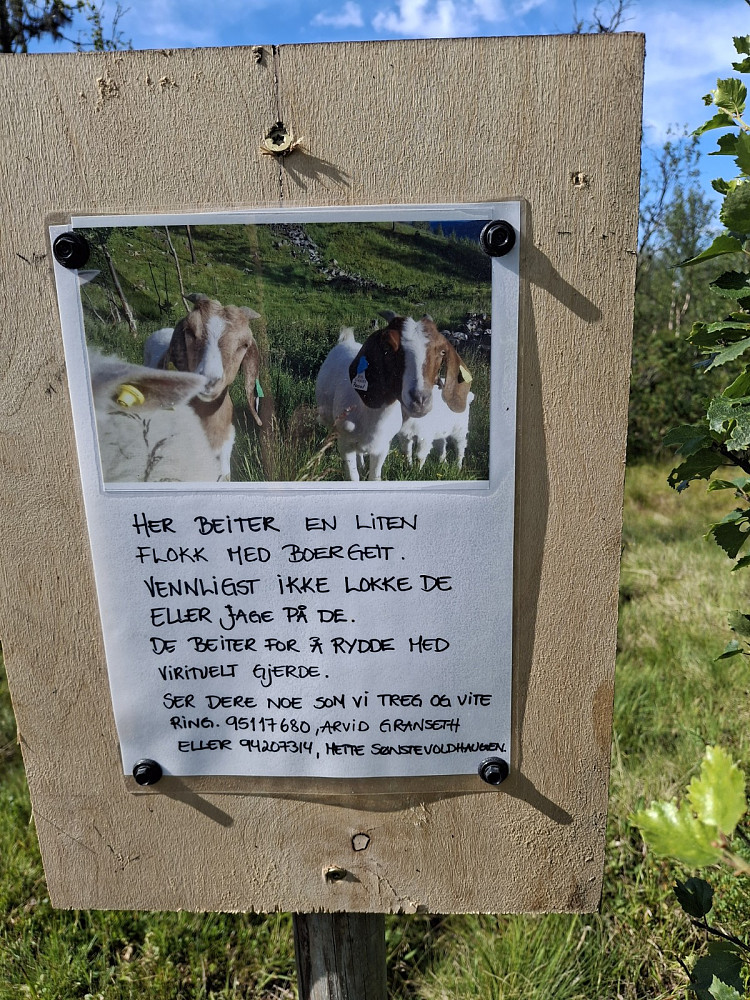 HER BEITER EN LITEN
FLOKK MED BOERGEIT.
VENNLIGST IKKE LOKKE DE
ELLER JAGE PÅ DE.
DE BEITER FOR Å RYDDE MED
VIRITUELT GJERDE.
SER DERE NOE SOM VI TREG OG VITE
RING. 95117680, ARVID GRANSETH
ELLER 94207314, METTE SØNSTEVOLDHAUGEN.